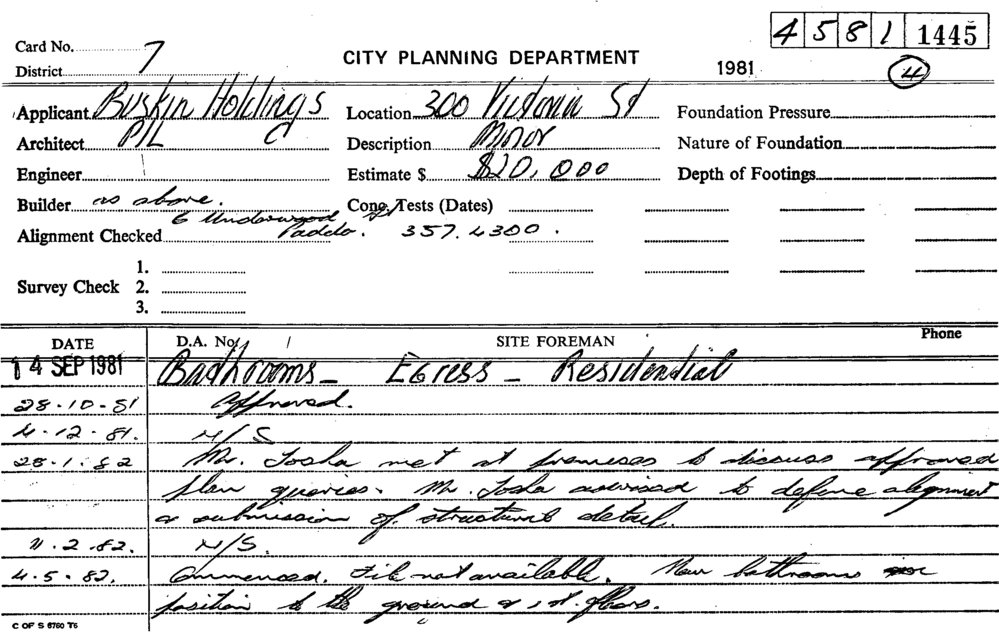 4 5 8 1 1445
Card No. 7
CITY PLANNING DEPARTMENT
1981
4
District
Applicant Buskin Holdings
Location 300 Victoria St
Foundation Pressure
Architect P/L
Description Minor
Nature of Foundation
Engineer
Estimate $ $20,000
Depth of Footings
Builder as above.
Conc. Tests (Dates)
6 Underwood St
Alignment Checked Paddo. 357.4300.
1.
Survey Check 2.
3.
DATE D.A. No. SITE FOREMAN Phone
14 SEP 1981 Bathrooms - Egress - Residential
28.10.81 Approved.
4.12.81. N/S
28.1.82 Mr. met at premises to discuss approved
plan queries. Mr. advised to define alignment
& submission of structural detail.
11.2.82. N/S.
4.5.82. Commenced. File not available. New bathrooms in
position to the ground & 1st. floors.
C OF S 6760 T6